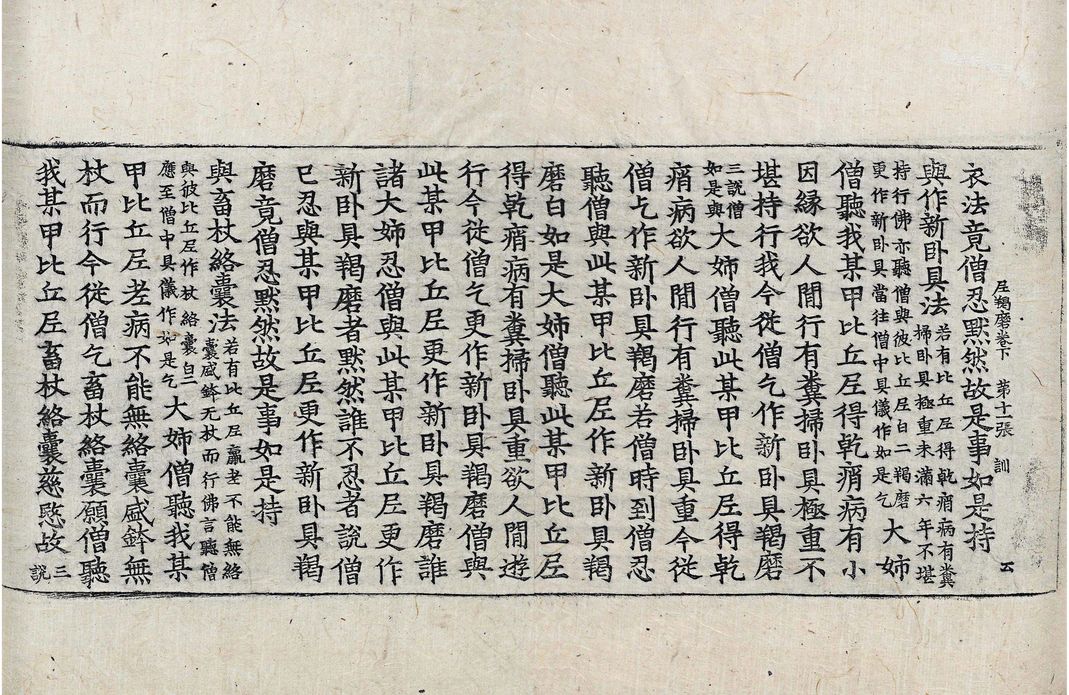 尼羯磨卷下 第十一張 訓
衣法竟僧忍默然故是事如是持
與作新卧具法 若有比丘尼得乾痟病有糞掃卧具極重未滿六年不堪
持行佛亦聽僧與彼比丘尼白二羯磨更作新卧具當往僧中具儀作如是乞 大姉
僧聽我某甲比丘尼得乾痟病有小
因縁欲人閒行有糞掃卧具極重不
堪持行我今從僧乞作新卧具羯磨
三說僧如是與 大姉僧聽此某甲比丘尼得乾
痟病欲人閒行有糞掃卧具重今從
僧乞作新卧具羯磨若僧時到僧忍
聽僧與此某甲比丘尼作新卧具羯
磨白如是大姉僧聽此某甲比丘尼
得乾痟病有糞掃卧具重欲人閒遊
行今從僧乞更作新卧具羯磨僧與
此某甲比丘尼更作新卧具羯磨誰
諸大姉忍僧與此某甲比丘尼更作
新卧具羯磨者默然誰不忍者說僧
已忍與某甲比丘尼更作新卧具羯
磨竟僧忍默然故是事如是持
與畜杖絡囊法 若有比丘尼羸老不能無絡囊盛鉢无杖而行佛言聽僧
與彼比丘尼作杖絡囊白二應至僧中具儀作如是乞 大姉僧聽我某
甲比丘尼老病不能無絡囊盛鉢無
杖而行今從僧乞畜杖絡囊願僧聽
我某甲比丘尼畜杖絡囊慈愍故 三說